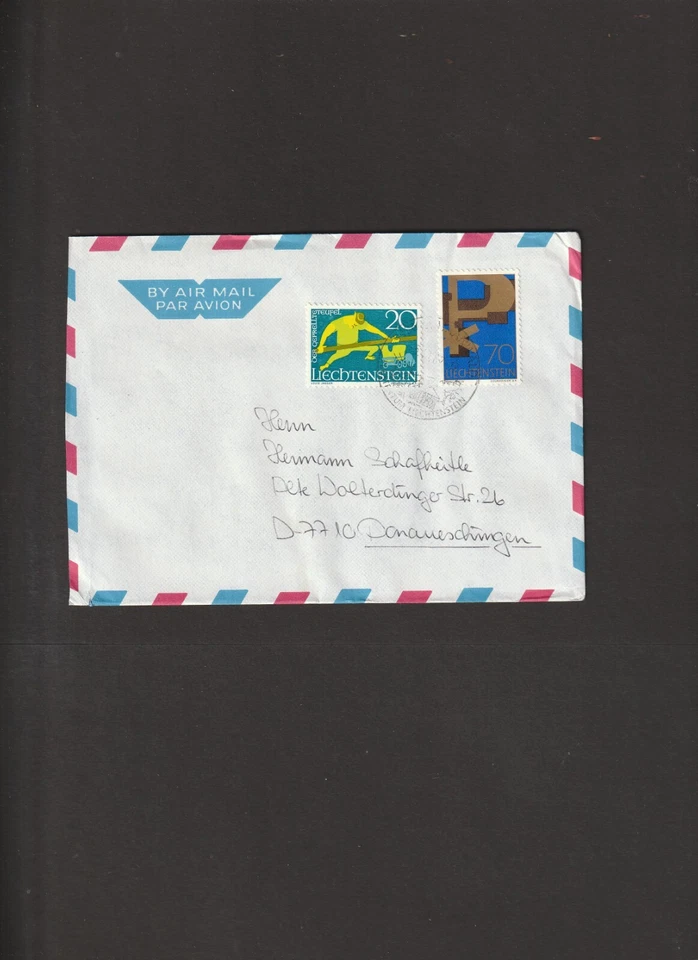 BY AIR MAIL
PAR AVION
DER GEPRELLTE TEUFEL
20
LIECHTENSTEIN
70
LIECHTENSTEIN
LIECHTENSTEIN
Herrn
Hermann Schafheitle
Alte Wolterdinger Str. 26
D-7710 Donaueschingen